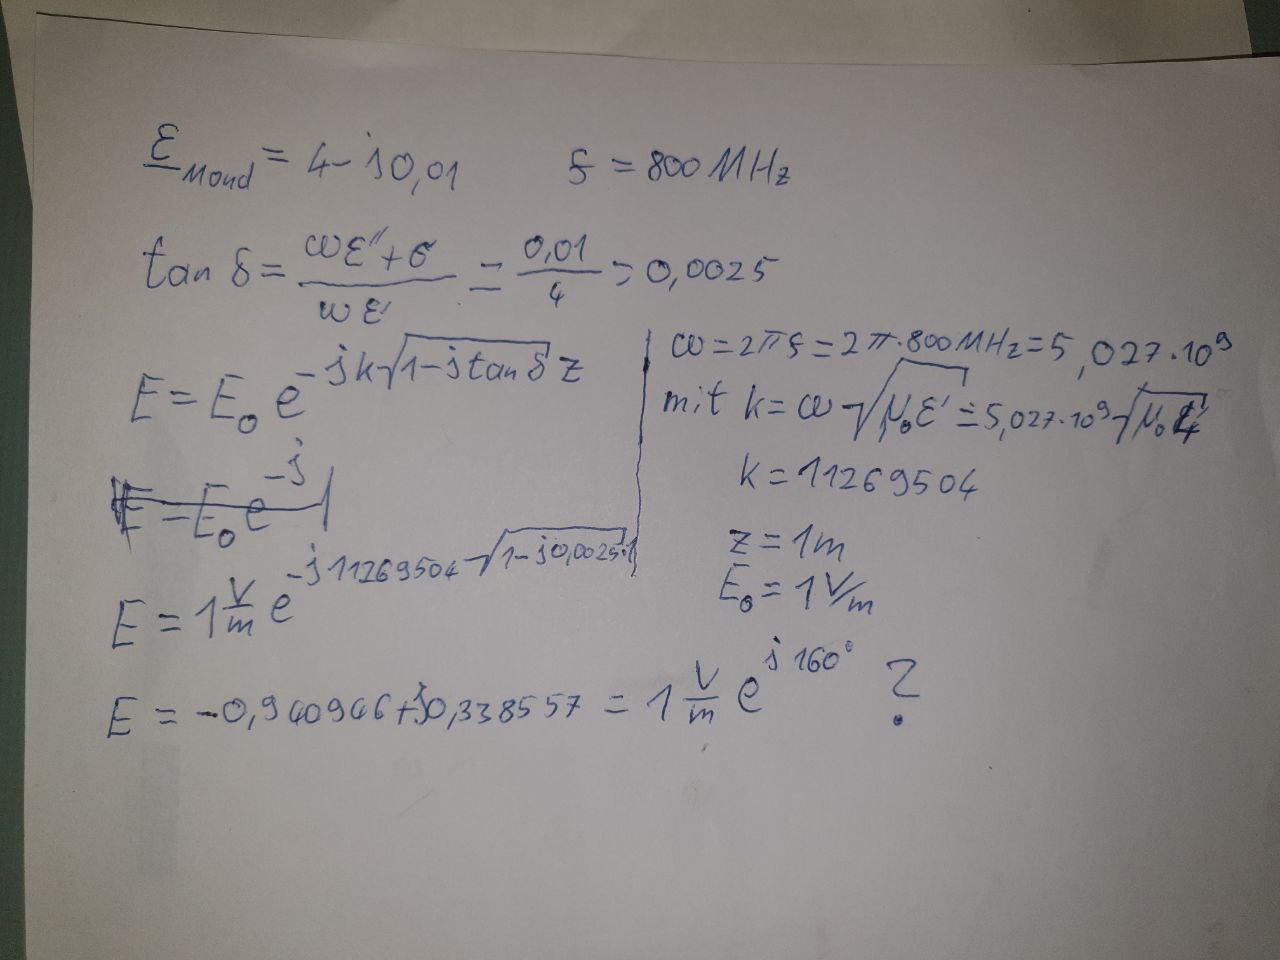 ε Mond = 4 - j0,01 f = 800 MHz
tan δ = (ωε'' + σ)/(ωε') = 0,01/4 = 0,0025
E = E₀ e^(-jk√(1-j tan δ) z)
ω = 2πf = 2π·800MHz = 5,027·10⁹
mit k = ω√(μ₀ε') = 5,027·10⁹√(μ₀4)
E = E₀ e^(-j
k = 11269504
z = 1m
E₀ = 1 V/m
E = 1 V/m e^(-j11269504√(1-j0,0025)·1)
E = -0,940946+j0,338557 = 1 V/m e^(j160°) ?